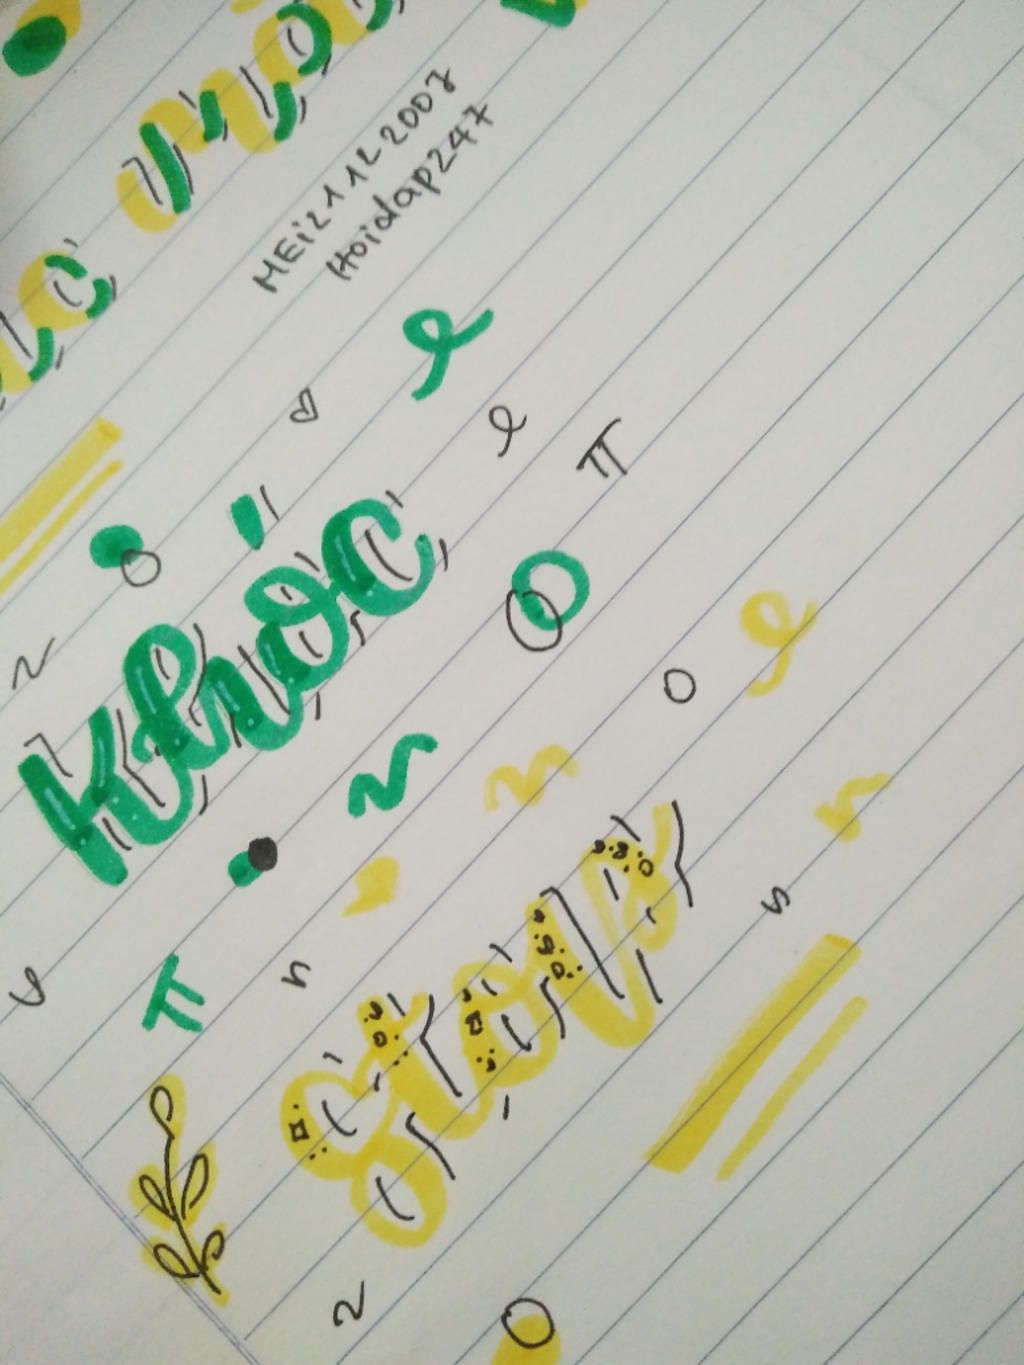 MEi21122007
Hoidap247
Khóc
stop